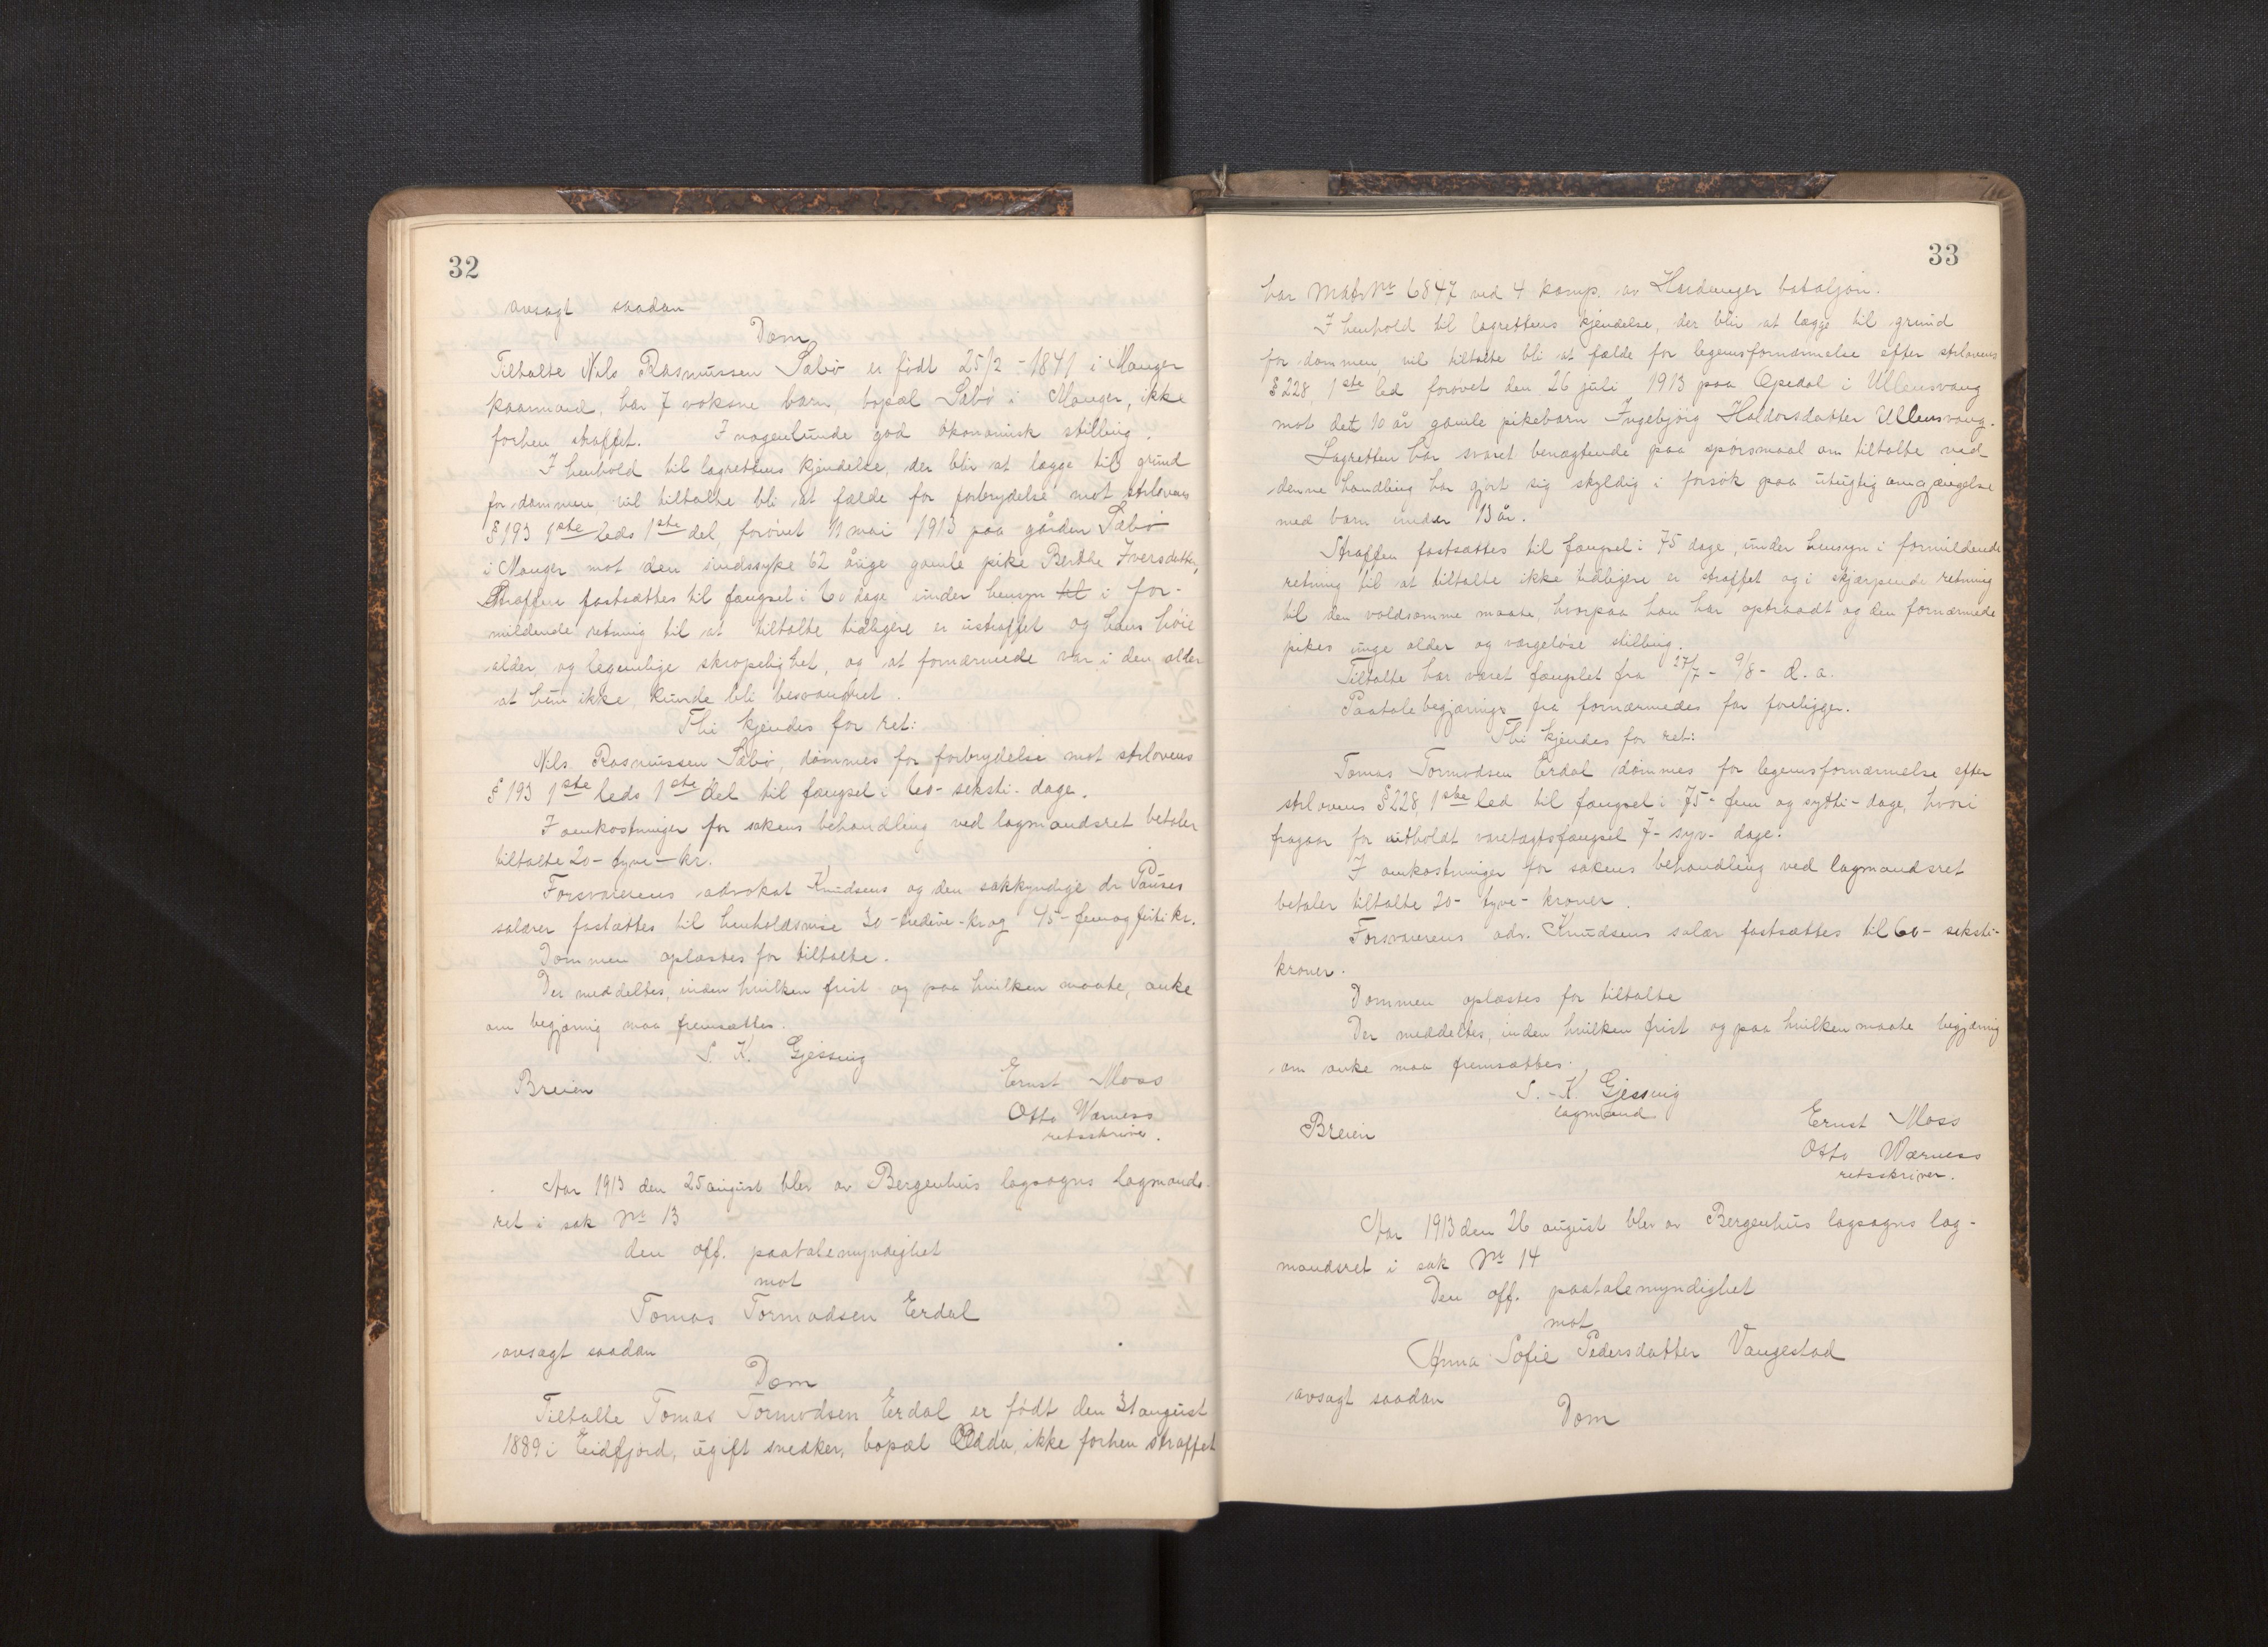 32
avsagt saadan
Dom
Tiltalte Nils Rasmussen Sæbø er født 25/2 - 1841 i Manger
kaarmand, har 7 voksne barn, bopæl Sæbø i Manger, ikke
forhen straffet. I nogenlunde god økonomisk stilling.
I henhold til lagrettens kjendelse, der blir at lægge til grund
for dommen vil tiltalte bli at fælde for forbrydelse mot strlovens
§ 193 1ste leds 1ste del, forøvet 11 mai 1913 paa gården Sæbø
i Manger mot den sindssyke 62 årige gamle pike Berthe Iversdatter,
Straffen fastsættes til fængsel i 60 dage under hensyn til i for-
mildende retning til at tiltalte tidligere er ustraffet og hans høie
alder, og legemlige skrøpelighet, og at fornærmede var i den alder
at hun ikke kunde bli besvangret.
Thi kjendes for ret:
Nils Rasmussen Sæbø, dømmes for forbrydelse mot strlovens
§ 193 1ste leds 1ste del til fængsel i 60- seksti- dage.
I omkostninger for sakens behandling ved lagmandsret betaler
tiltalte 20- tyve- kr.
Forsvarerens advokat Knudsens og den sakkyndige dr. Pauses
salærer fastsættes til henholdsvise 30- tredive- kr og 45- femogfirti kr.
Dommen oplæstes for tiltalte.
Der meddeltes, inden hvilken frist og paa hvilken maate, anke
om begjæring maa fremsættes.
S. K. Gjessing
Breien Ernst Moss
Otto Wærness
retsskriver.
Aar 1913 den 25 august blev av Bergenhus lagsogns Lagmands-
ret i sak Nr 13
den off. paatalemyndighet
mot
Tomas Tormodsen Erdal
avsagt saadan
Dom
Tiltalte Tomas Tormodsen Erdal er født den 31 august
1889 i Eidfjord, ugift snedker, bopæl Odda, ikke forhen straffet
33
har Matr Nr 6847 ved 4 komp. av Hardanger bataljon.
I henhold til lagrettens kjendelse, der blir at lægge til grund
for dommen, vil tiltalte bli at fælde for legemsfornærmelse efter strlovens
§ 228, 1ste led forøvet den 26 juli 1913 paa Opedal i Ullensvang
mot det 10 år gamle pikebarn Ingebjørg Haldorsdatter Ullensvang.
Lagretten har svaret benægtende paa spørsmaal om tiltalte ved
denne handling har gjort sig skyldig i forsøk paa utugtig omgjængelse
med barn under 13 år.
Straffen fastsættes til fængsel i 75 dage, under hensyn i formildende
retning til at tiltalte ikke tidligere er straffet og i skjærpende retning
til den voldsomme maate, hvorpaa han har optraadt og den fornærmede
pikes unge alder og værgeløse stilling.
Tiltalte har været fængslet fra 27/7 - 9/8 - d. a.
Paatalebegjæring fra fornærmedes far foreligger.
Thi kjendes for ret:
Tomas Tormodsen Erdal dømmes for legemsfornærmelse efter
strlovens § 228, 1ste led til fængsel i 75- fem og sytti- dage, hvori
fragaar for utholdt varetægtsfængsel 7- syv- dage.
I omkostninger for sakens behandling ved lagmandsret
betaler tiltalte 20- tyve- kroner.
Forsvarerens adv. Knudsens salær fastsættes til 60- seksti-
kroner.
Dommen oplæstes for tiltalte
Der meddeltes, inden hvilken frist og paa hvilken maate begjæring
om anke maa fremsættes.
S. K. Gjessing
lagmand
Breien Ernst Moss
Otto Wærness
retsskriver.
Aar 1913 den 26 august blev av Bergenhus lagsogns lag-
mandsret i sak Nr 14
Den off. paatalemyndighet
mot
Anna Sofie Pedersdatter Vangestad
avsagt saadan
Dom